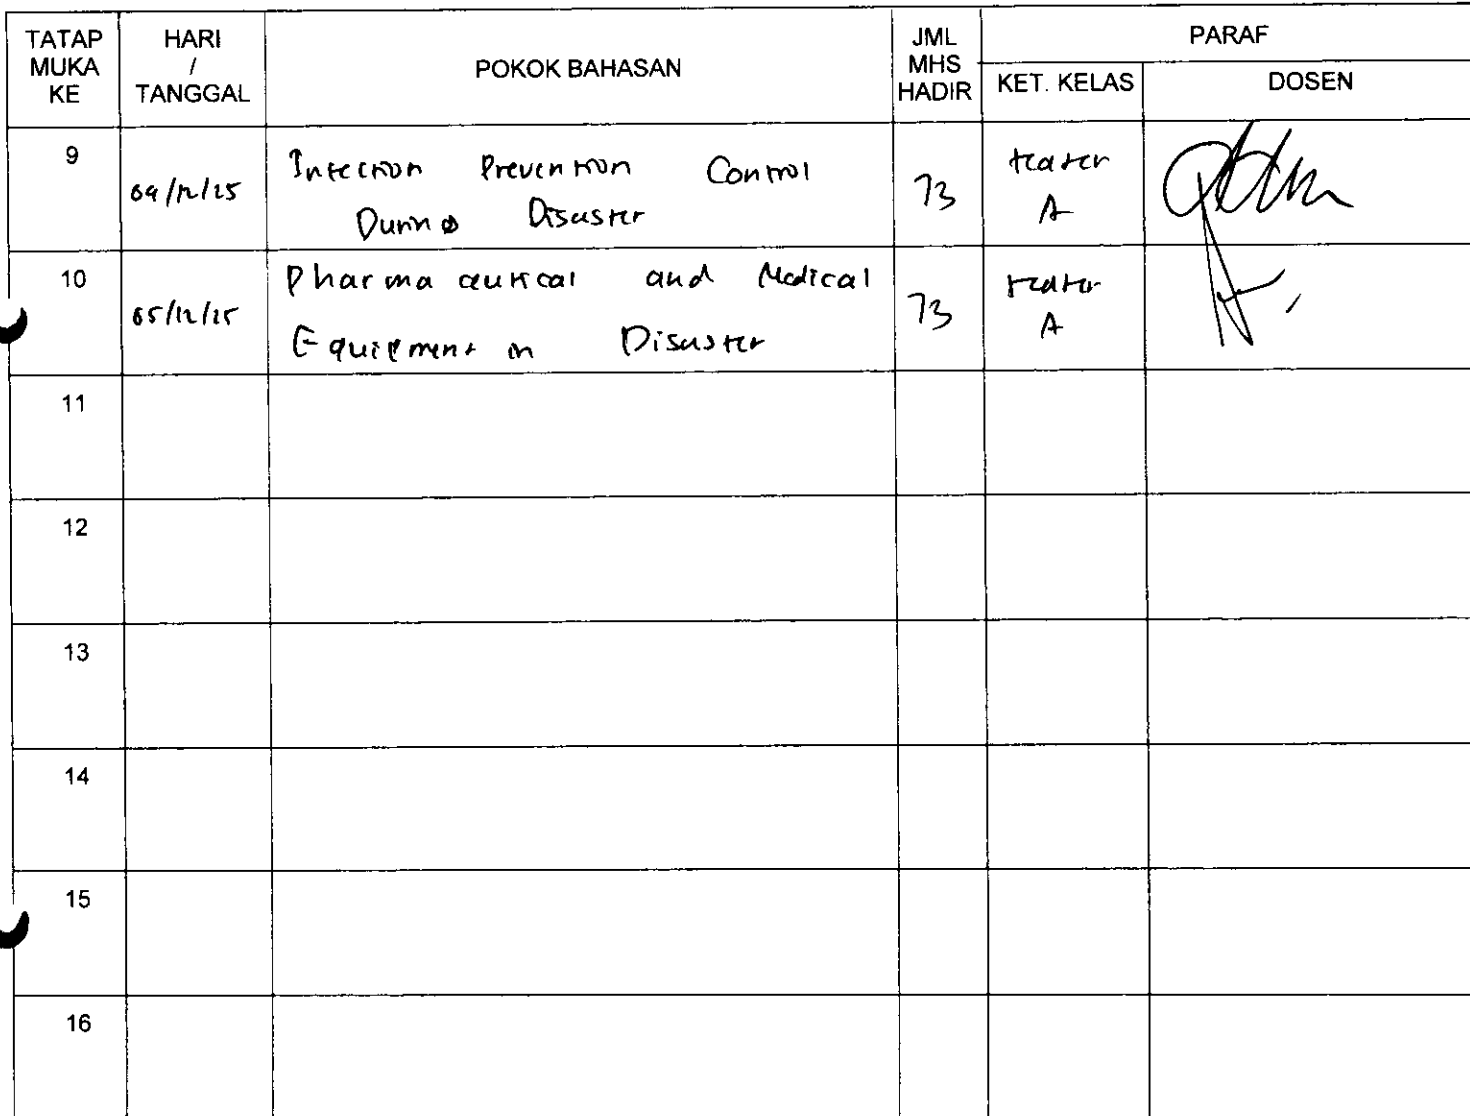 TATAP MUKA KE
HARI / TANGGAL
POKOK BAHASAN
JML MHS HADIR
PARAF
KET. KELAS
DOSEN
9
04/12/25
Infection Prevention Control
During Disaster
73
teater
A
10
05/12/25
Pharmaceutical and Medical
Equipment in Disaster
73
teater
A
11
12
13
14
15
16